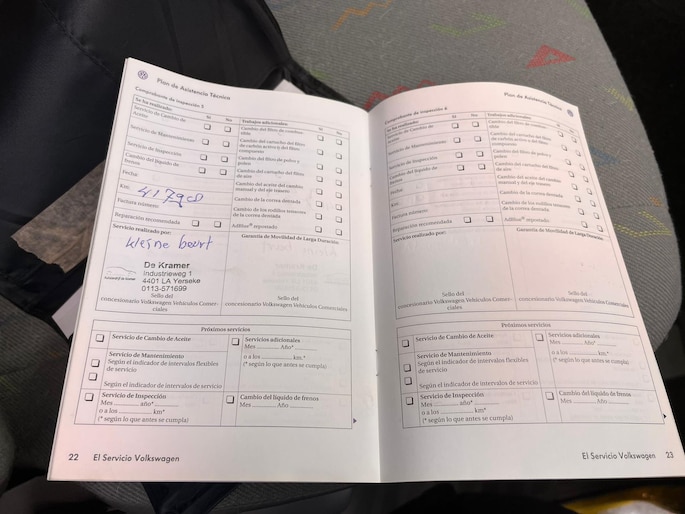 Plan de Asistencia Técnica
Comprobante de inspección 5
Se ha realizado: Sí No
Servicio de Cambio de Aceite
Servicio de Mantenimiento
Servicio de Inspección
Cambio del líquido de frenos
Fecha:
Km:
Factura número:
Reparación recomendada
Trabajos adicionales: Sí No
Cambio del filtro de combustible
Cambio del cartucho del filtro de carbón activo y del filtro compuesto
Cambio del filtro de polvo y polen
Cambio del cartucho del filtro de aire
Cambio del aceite del cambio manual y del eje trasero
Cambio de la correa dentada
Cambio de los rodillos tensores de la correa dentada
AdBlue® repostado
Servicio realizado por:
kleine beurt
De Kramer
Industrieweg 1
4401 LA Yerseke
0113-571699
Sello del
concesionario Volkswagen Vehículos Comer-
ciales
Garantía de Movilidad de Larga Duración:
Sello del
concesionario Volkswagen Vehículos Comerciales
Próximos servicios
Servicio de Cambio de Aceite
Servicio de Mantenimiento
Según el indicador de intervalos flexibles
de servicio
Según el indicador de intervalos de servicio
Servicio de Inspección
Mes año*
o a los km*
(* según lo que antes se cumpla)
Servicios adicionales
Mes Año*
o a los km.*
(* según lo que antes se cumpla)
Cambio del líquido de frenos
Mes Año
22 El Servicio Volkswagen
Plan de Asistencia Técnica
Comprobante de inspección 6
Se ha realizado: Sí No
Servicio de Cambio de
Aceite
Servicio de Mantenimiento
Servicio de Inspección
Cambio del líquido de
frenos
Fecha:
Km:
Factura número:
Reparación recomendada
Trabajos adicionales: Sí No
Cambio del filtro de combustible
Cambio del cartucho del filtro
de carbón activo y del filtro
compuesto
Cambio del filtro de polvo y
polen
Cambio del cartucho del filtro
de aire
Cambio del aceite del cambio
manual y del eje trasero
Cambio de la correa dentada
Cambio de los rodillos tensores
de la correa dentada
AdBlue® repostado
Servicio realizado por:
Garantía de Movilidad de Larga Duración:
Sello del
concesionario Volkswagen Vehículos Comer-
ciales
Sello del
concesionario Volkswagen Vehículos Comerciales
Próximos servicios
Servicio de Cambio de Aceite
Servicio de Mantenimiento
Según el indicador de intervalos flexibles
de servicio
Según el indicador de intervalos de servicio
Servicio de Inspección
Mes año*
o a los km*
(* según lo que antes se cumpla)
Servicios adicionales
Mes Año*
o a los km.*
(* según lo que antes se cumpla)
Cambio del líquido de frenos
Mes Año
El Servicio Volkswagen 23